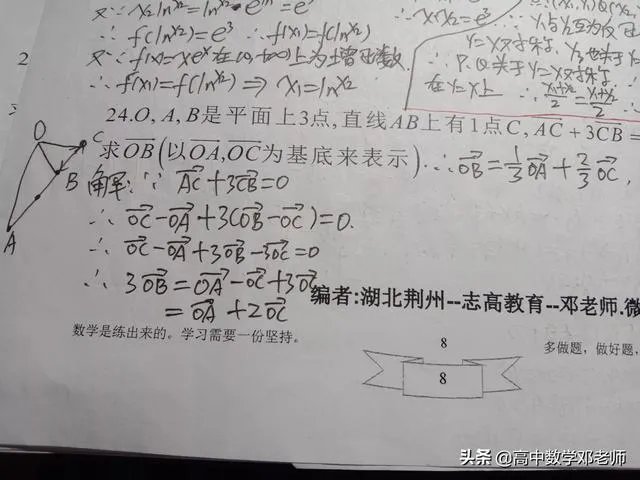 又∵ x₂lnx₂=lnx₂·e^lnx₂=e³
∴ f(lnx₂)=e³ ∴f(x₁)=f(lnx₂)
又∵f(x)=xeˣ在(0,+∞)上为增函数.
∴f(x₁)=f(lnx₂)⇒x₁=lnx₂
∴x₁x₂=e³
Y=X对称.
∴P.Q关于Y=X对称.
在Y=X上
24.O,A,B是平面上3点,直线AB上有1点C,AC+3CB=
求OB(以OA,OC为基底来表示) ∴OB=1/3OA+2/3OC,
解:∵ AC+3CB=0
∴ OC-OA+3(OB-OC)=0.
∴ OC-OA+3OB-3OC=0
∴ 3OB=OA-OC+3OC
=OA+2OC
O
C
B
A
编者:湖北荆州--志高教育--邓老师.微
数学是练出来的。学习需要一份坚持。
8
多做题，做好题，
8
头条 @高中数学邓老师